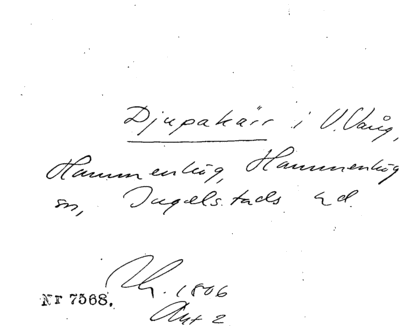 Djupakärr i V. Vång,
Hammenhög, Hammenhög
sn, Ingelstads hd.
1806
Akt 2
Nr 7568.